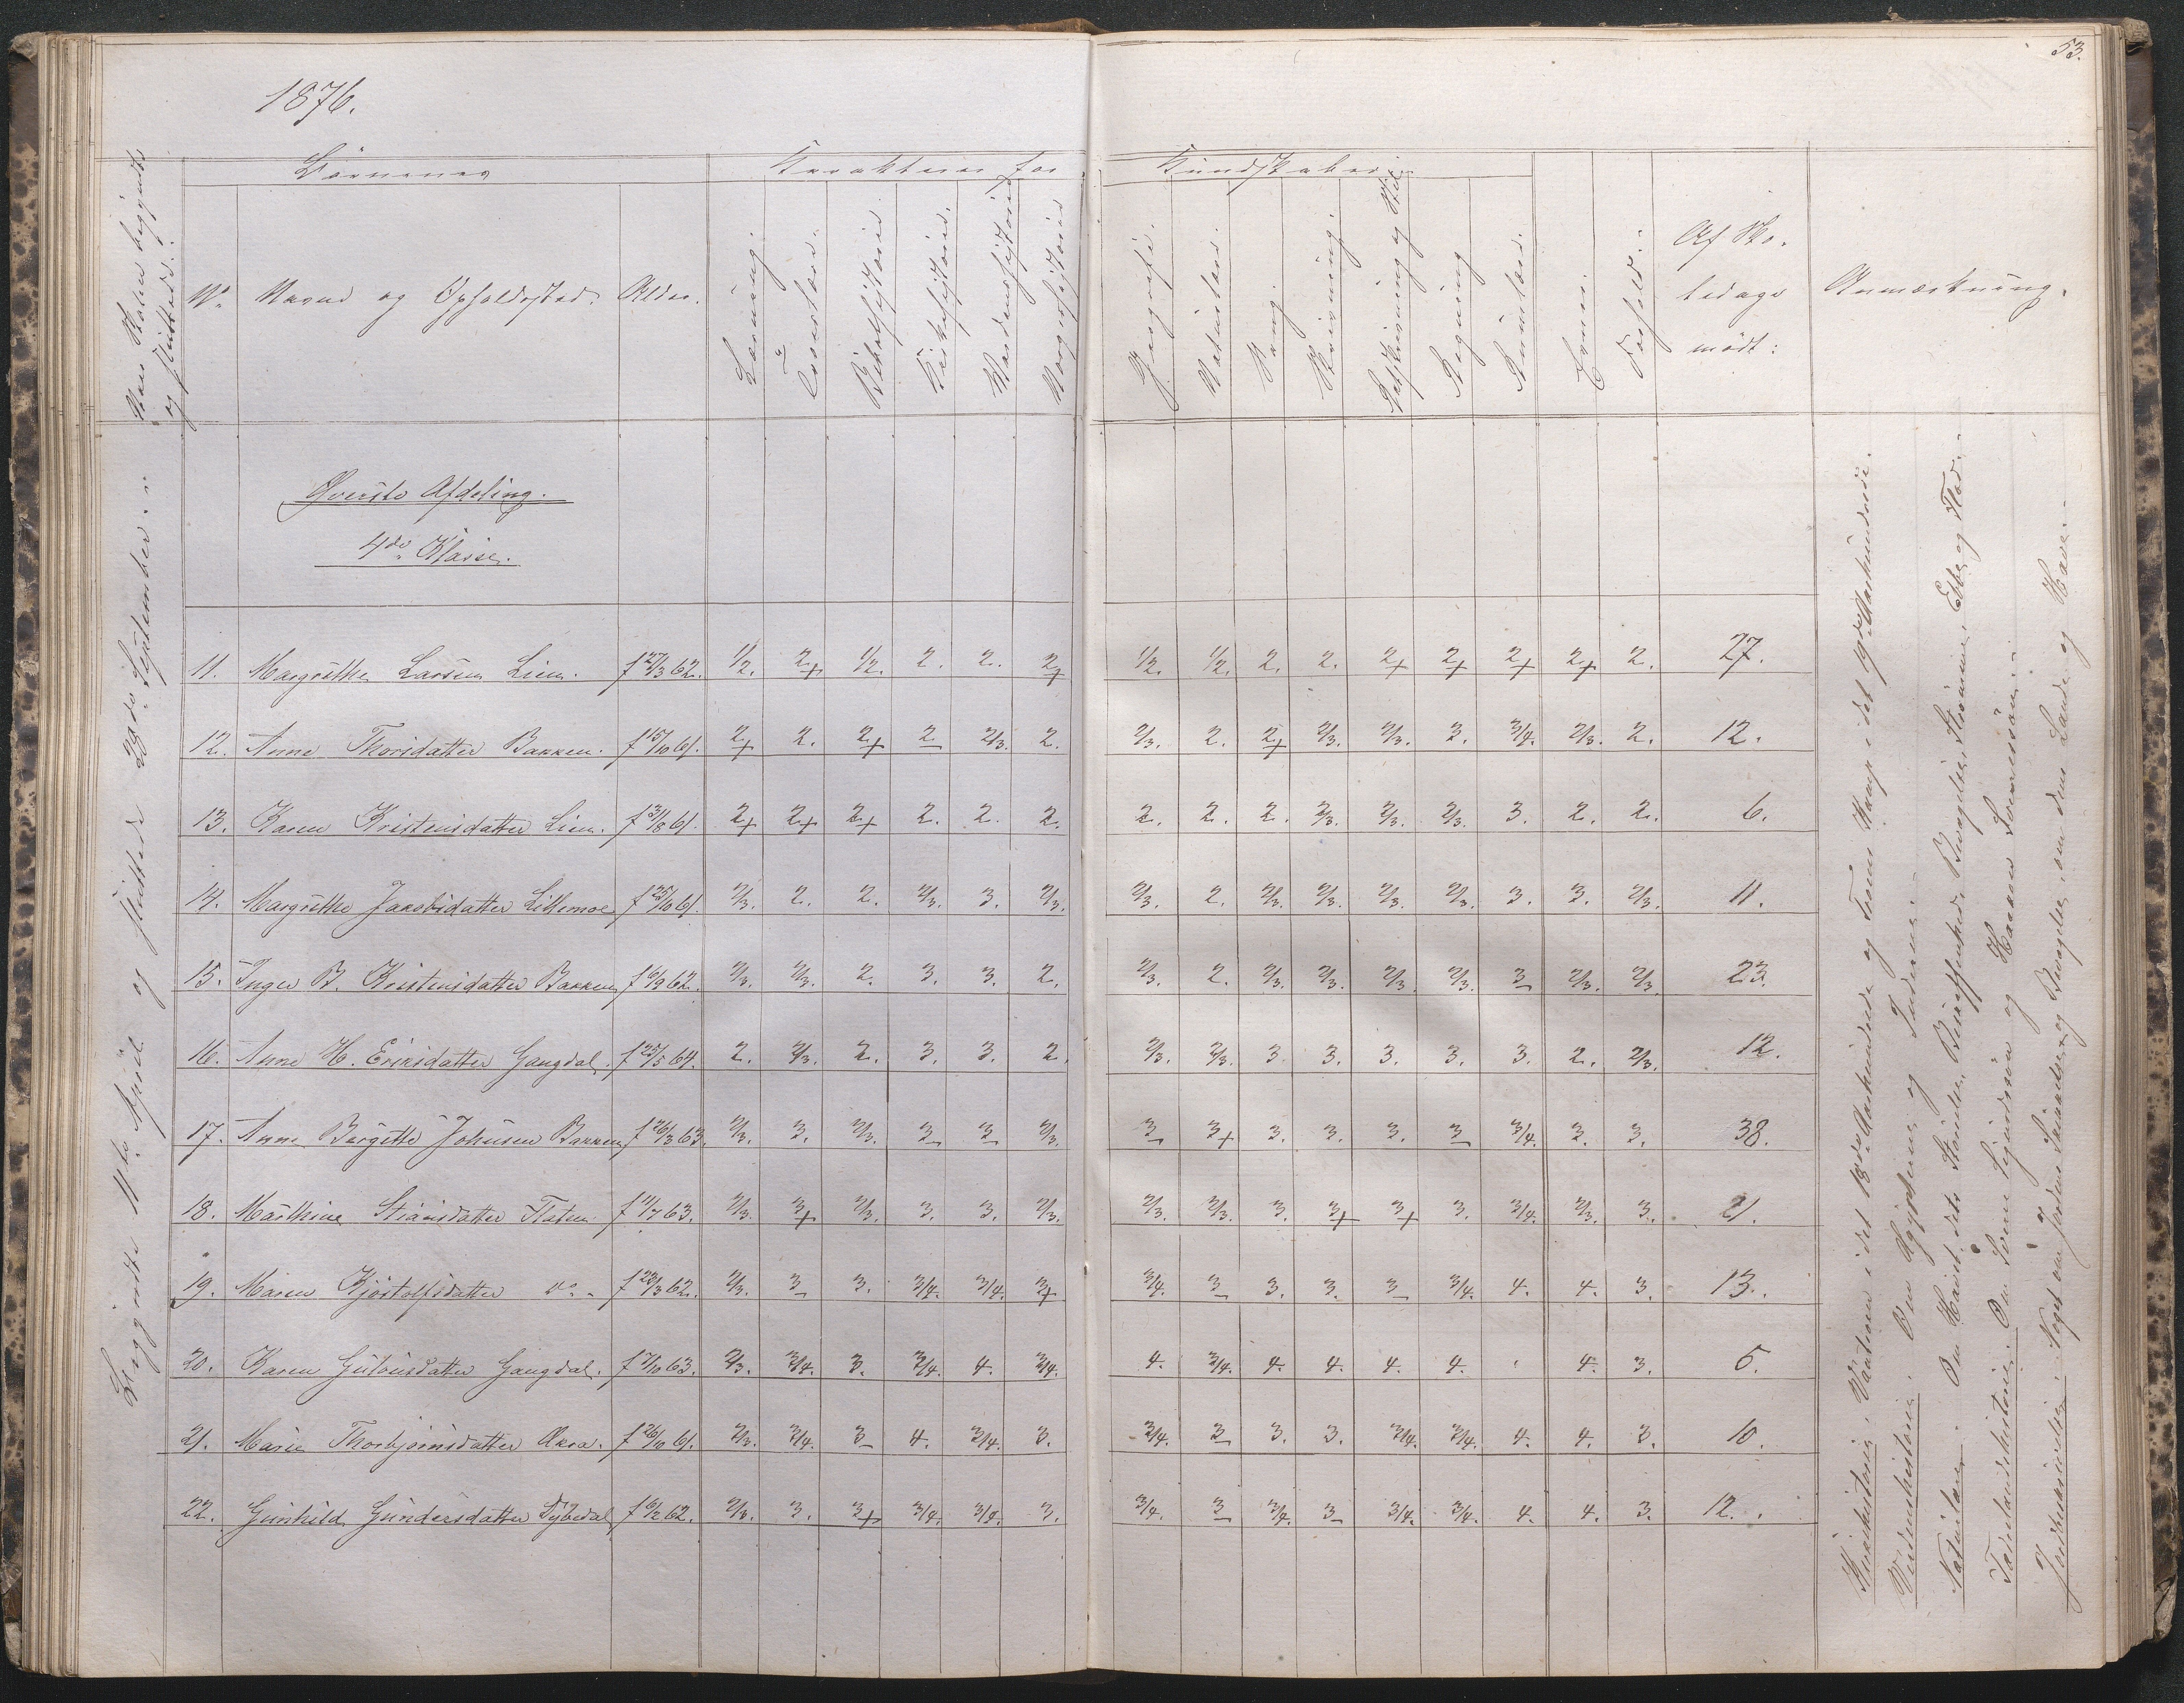 53.
1876.
Naar Skolen begyndte
og sluttede.
Børnenes
Karakterer for
Kundskaber i
No.
Navne og Opholdssted.
Alder.
Læsning.
Troeslære.
Bibelhistorie.
Kirkehistorie.
Verdenshistorie
Norgeshistorie
Geografi.
Naturlære.
Sang.
Skrivning.
Retskrivning og Stil
Regning
Rumlære.
Evner.
Forhold.
Af Sko-
ledage
mødt:
Anmærkning.
Begyndte 11te April og sluttede September.
Øverste Afdeling.
4de Klasse.
11. Margrethe Larsen Lien. f 27/3 62. 1/2. 2+ 1/2. 2. 2. 2+ 1/2. 1/2. 2. 2. 2+ 2+ 2+ 2+ 2. 27.
12. Anne Thorsdatter Bakken. f 15/10 61. 2+ 2. 2+ 2 2/3. 2. 2/3. 2. 2+ 2/3. 2/3. 3. 3/4. 2/3. 2. 12.
13. Karen Kristensdatter Lien. f 31/8 61. 2+ 2+ 2+ 2. 2. 2. 2. 2. 2. 2/3. 2/3. 2/3. 3. 2. 2. 6.
14. Margrethe Jakobsdatter Lillemoe f 25/10 61. 2/3. 2. 2. 2/3. 3. 2/3. 2/3. 2. 2/3. 2/3. 2/3. 2/3. 3. 3. 2/3. 11.
15. Inger B. Kristensdatter Bakken f 6/9 62. 2/3. 2/3. 2. 3. 3. 2. 2/3. 2. 2/3. 2/3. 2/3. 2/3. 3 2/3. 2/3. 23.
16. Anne H. Eriksdatter Gangdal. f 25/5 64. 2. 2/3. 2. 3. 3. 2. 2/3. 2/3. 3 3. 3. 3. 3. 2. 2/3. 12.
17. Anne Bergitte Johnsen Bakken f 26/3 63. 2/3. 3. 2/3. 3 3 2/3. 3 3+ 3. 3. 3. 3 3/4. 3. 3. 38.
18. Marthine Stiansdatter Flaten. f 11/7 63. 2/3. 3+ 2/3. 3. 3. 2/3. 2/3. 2/3. 3. 3+ 3+ 3. 3/4. 2/3. 3. 21.
19. Maren Kjøstolfsdatter do. f 23/3 62. 2/3. 3 3. 3/4. 3/4. 3+ 3/4. 3 3. 3. 3 3/4. 4. 4. 3. 13.
20. Karen Gulovsdatter Gangdal. f 7/10 63. 2/3. 3/4. 3. 3/4. 4. 3/4. 4. 3/4. 4. 4. 4. 4. 4. 3. 5.
21. Marie Thorbjørnsdatter Akra. f 26/10 61. 2/3. 3/4. 3 4. 3/4. 3. 3/4. 3 3. 3. 3/4. 3/4. 4. 4. 3. 10.
22. Gunhild Gundersdatter Dybedal f 6/2 62. 2/3. 3. 3+ 3/4. 3/4. 3. 3/4. 3 3/4. 3 3/4. 3/4. 4. 4. 3. 12.
Kirkehistorie. i det 18de Aarhundrede og i det 19de Aarhundrede.
Verdenshistorie. Om Ægypterne og Inderne.
Naturlære. Om Havet, dets Stande, Beskaffenhed, Bevægelser, Strømme, Ebbe og Flod.
Fædrelandshistorie. Om Sverre Sigurdssøn og Haakon Sverressøn.
Jordbeskrivelse. Noget om Jordens og Bevægelse, om dens Lande og Have.